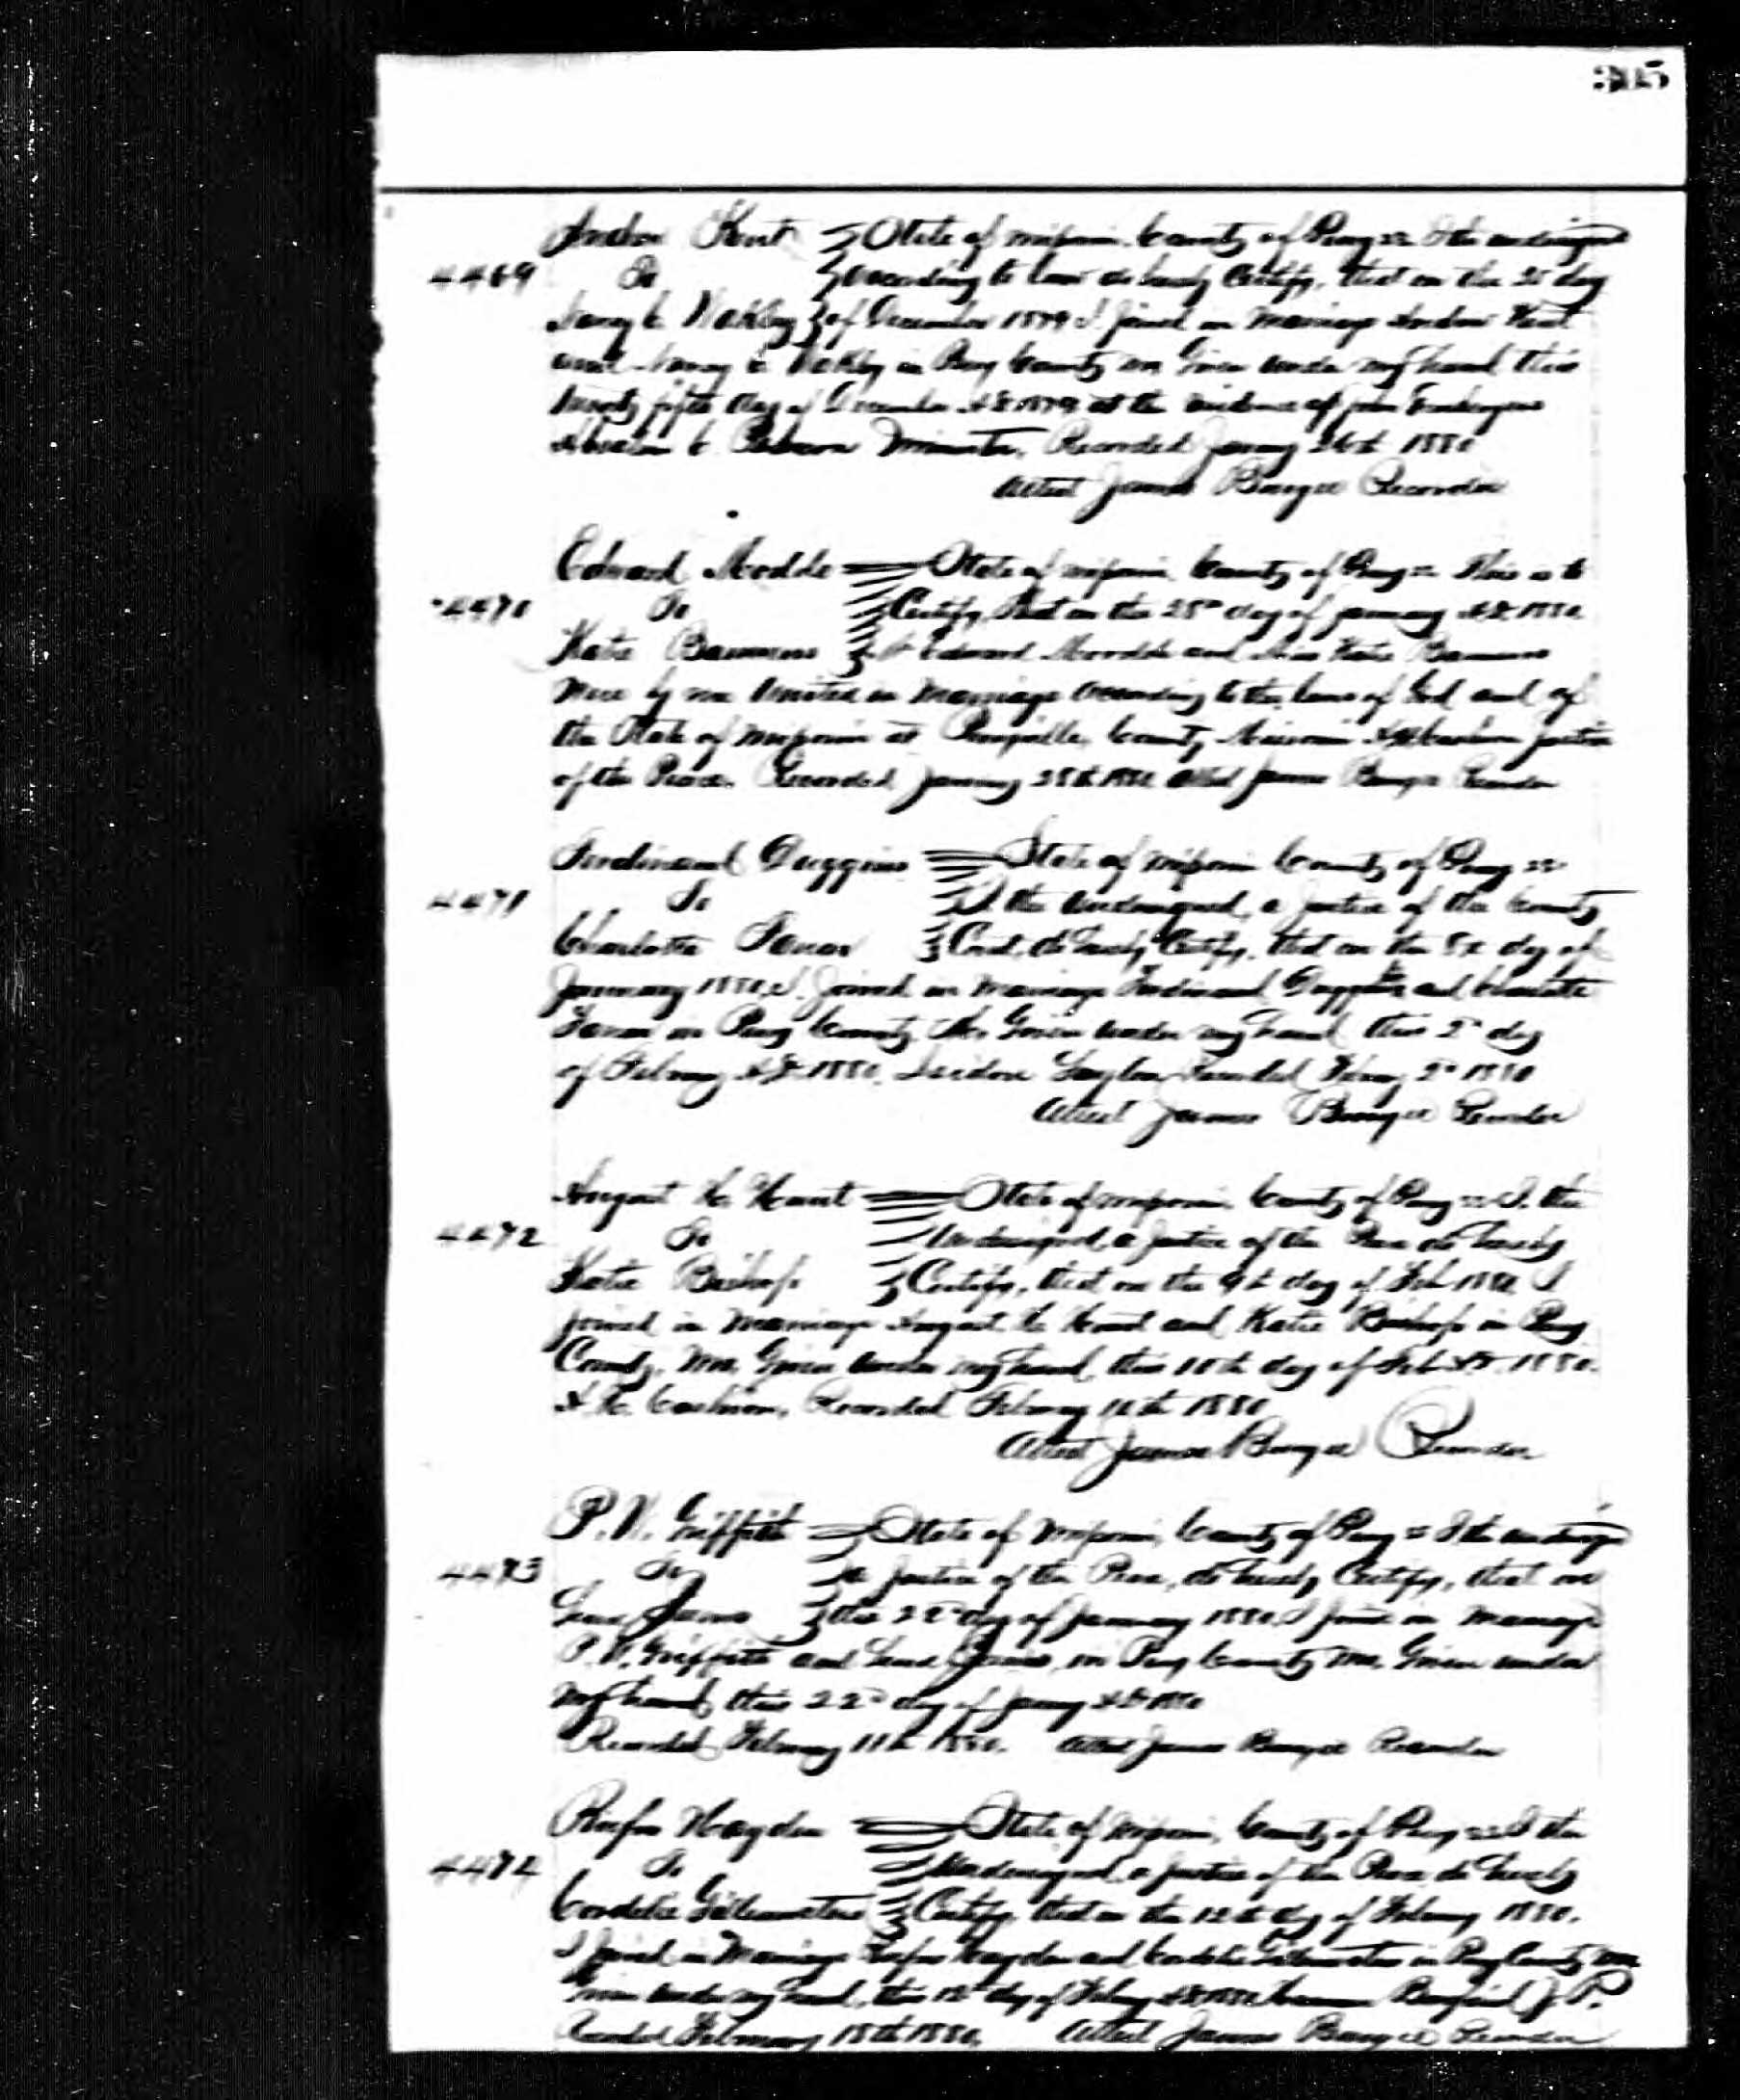 305
Andrew Kent State of Missouri County of Perry ss I the undersigned
4469 To according to law do hereby Certify, that on the 25 day
Nancy C. of December 1879 I joined in Marriage Andrew Kent
and Nancy C. in Perry County Mo Given under my hand this
twenty fifth day of December A.D. 1879 at the residence of
C. Minister. Recorded January 26th 1880
Attest James Burgee Recorder
Edward Modde State of Missouri County of Perry ss This is to
4470 To Certify, that on the 28th day of January A.D. 1880
Katie Edward Modde and Miss Katie
were by me United in Marriage according to the laws of God and of
the State of Missouri at Perryville, County Missouri Justice
of the Peace. Recorded January 28th 1880 Attest James Burgee Recorder
Ferdinand Duggins State of Missouri County of Perry ss
4471 To I the undersigned, a Justice of the County
Charlotte Court, do hereby Certify, that on the 8th day of
January 1880, I joined in Marriage Ferdinand and Charlotte
in Perry County, Mo. Given under my hand this 2d day
of February A.D. 1880. Isidore Layton Recorded February 2d 1880
Attest James Burgee Recorder
August H. State of Missouri, County of Perry ss I, the
4472 To Undersigned, a Justice of the Peace do hereby
Katie Bishop Certify, that on the 9th day of Feb 1880 I
joined in Marriage August H. and Katie Bishop in Perry
County, Mo. Given under my hand, this 10th day of Feb A.D. 1880.
Cashion, Recorded February 10th 1880
Attest James Burgee Recorder
P. V. Griffith State of Missouri, County of Perry ss I the undersigned
4473 To a Justice of the Peace, do hereby Certify, that on
the 22d day of January 1880 I join in Marriage
P. V. Griffith and in Perry County Mo. Given under
my hand, this 22d day of January A.D. 1880
Recorded February 11th 1880. Attest James Burgee Recorder
Rufus Hayden State of Missouri, County of Perry ss I the
4474 To Undersigned, a Justice of the Peace do hereby
Cordelia Certify, that on the 12th day of February 1880.
I joined in Marriage Rufus Hayden and Cordelia in Perry County Mo
Given under my hand, this 12th day of February A.D. 1880 J. P.
Recorded February 18th 1880. Attest James Burgee Recorder